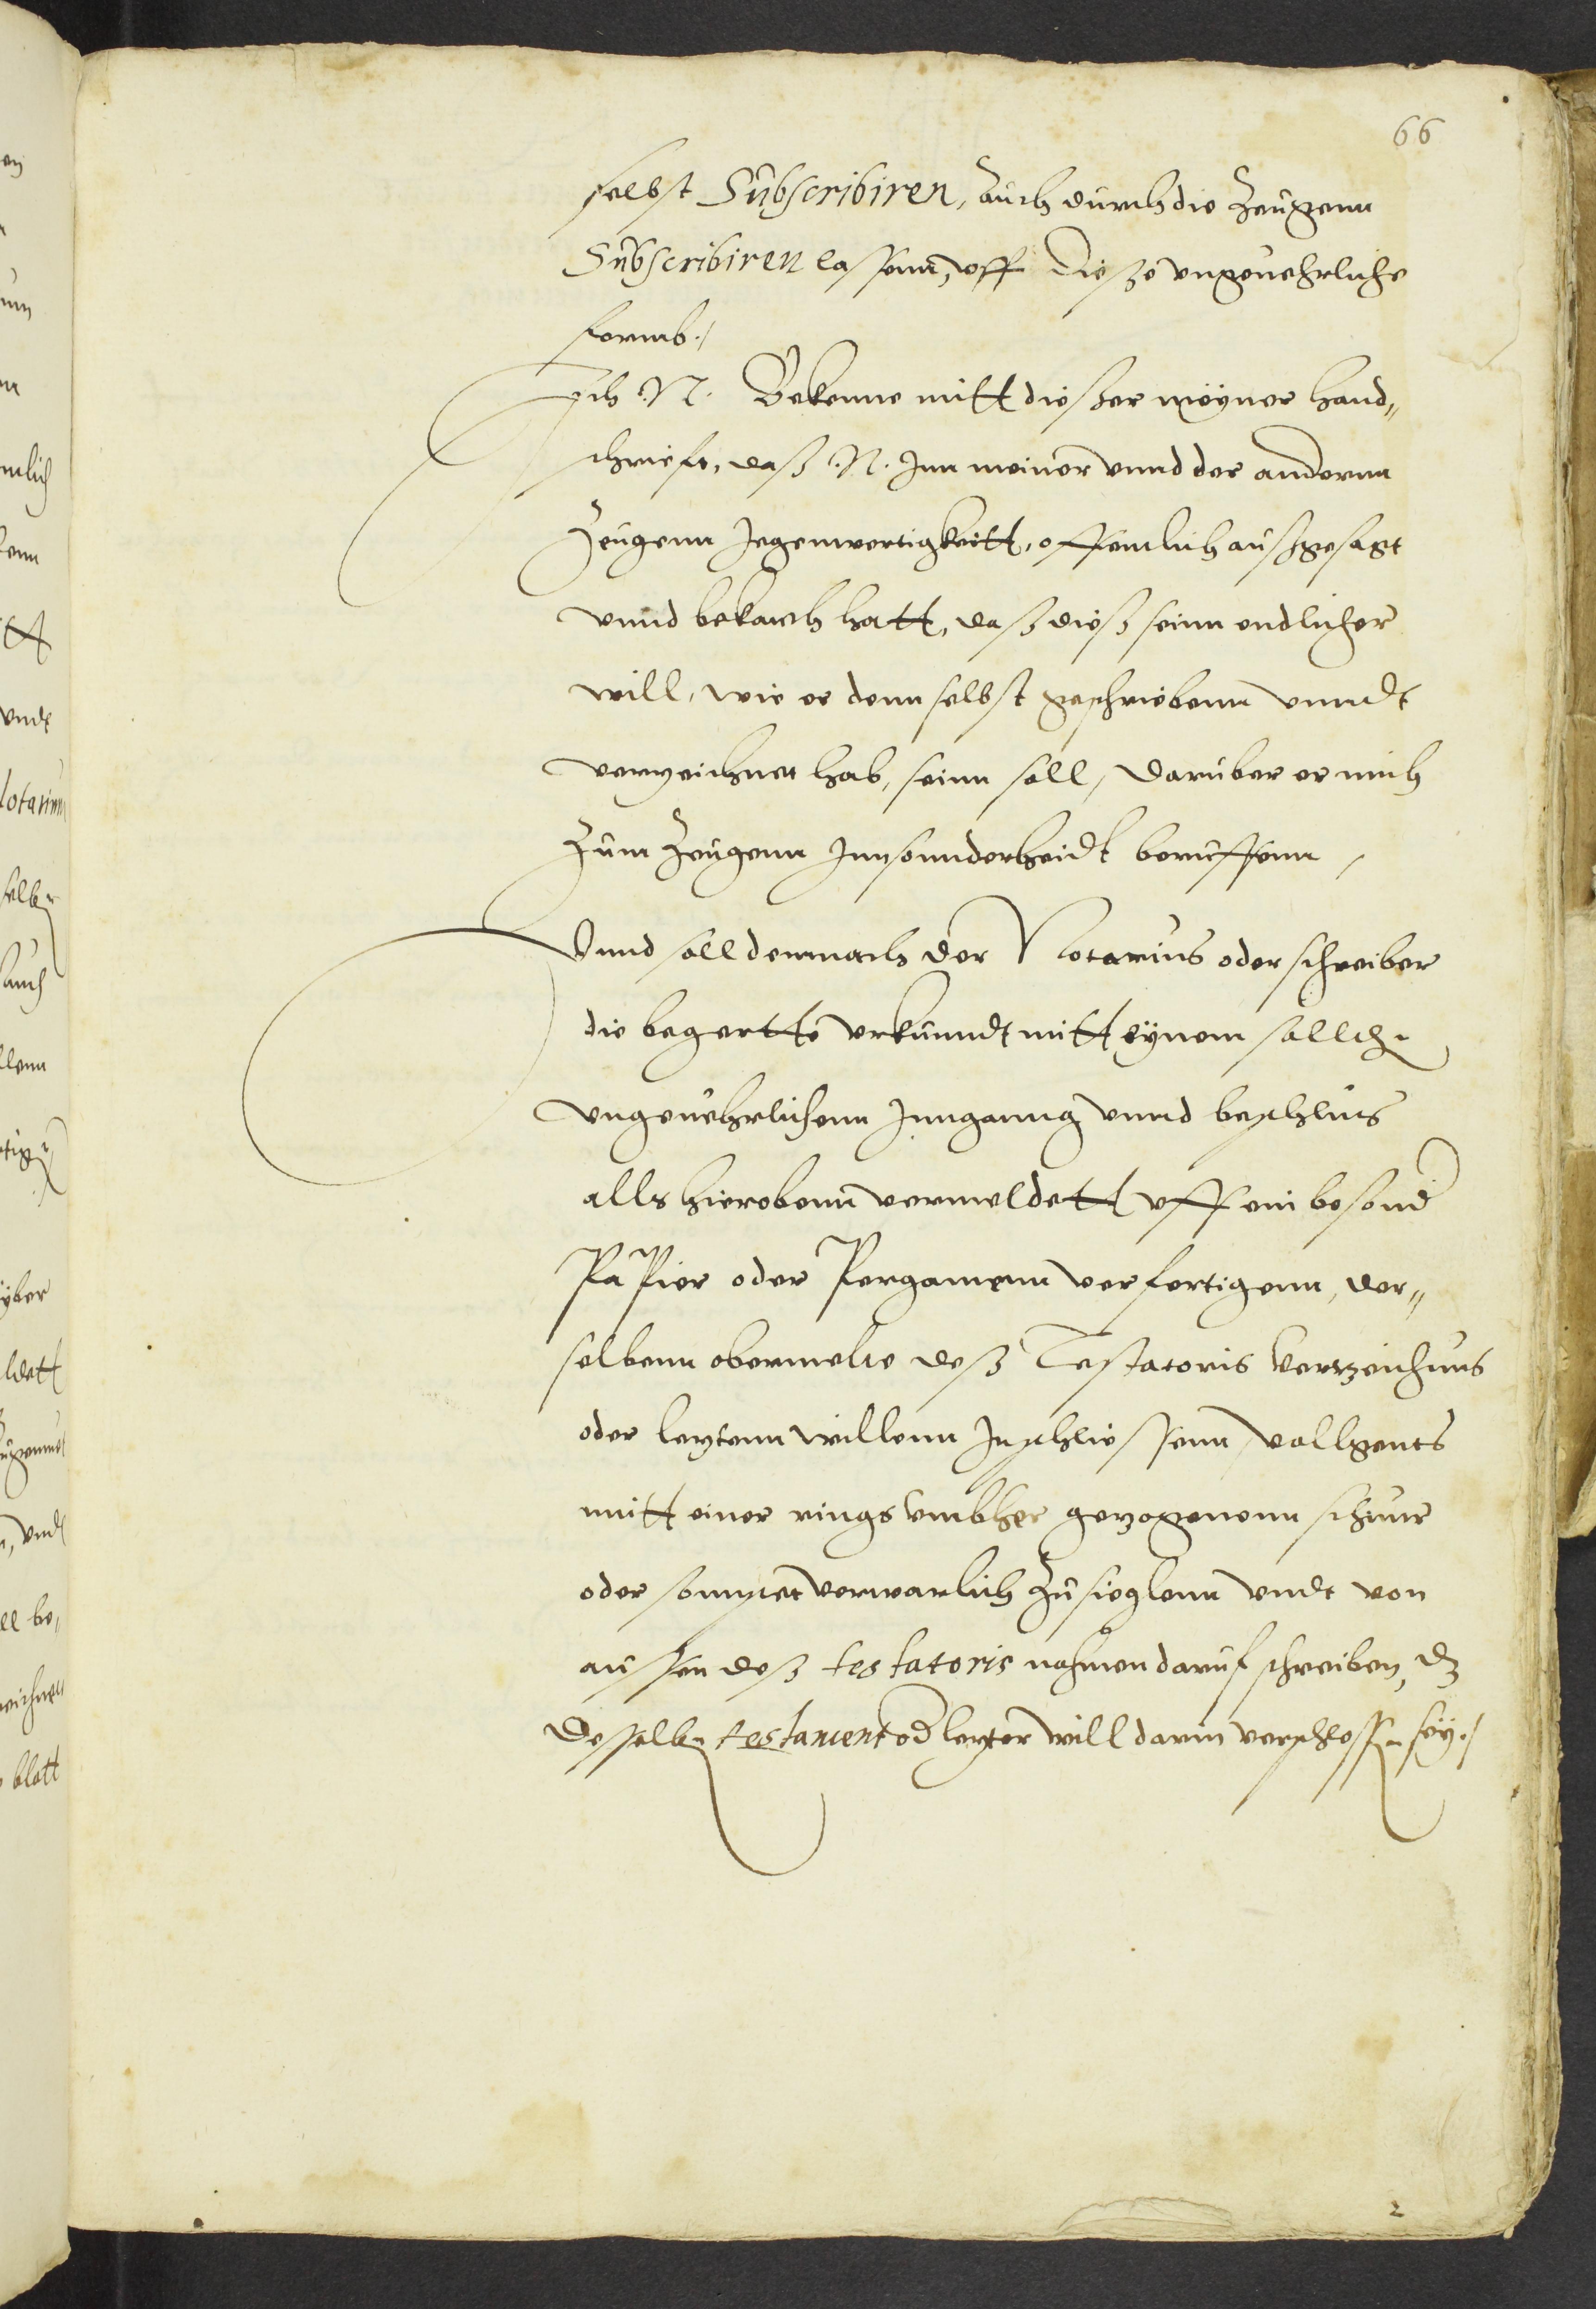 66
selbst Subscribiren, auch durch die Zeugenn
Subscribiren lassenn, vff diesze vngeuehrliche
formb./
Ich .N. Bekenne mitt dieszer meyner hand„
schriefft, dasz .N. Inn meiner vnnd der anderen
Zeugenn Jegenwertigkeitt, offentlich auszgesagt
vnnd bekanth hatt, dasz diesz seinn endlicher
will, wie er denn selbst geschriebenn vnndt
verzeichnet hab, seinn soll, darüber er mich
Zum Zeugenn Innsonnderheidt beruffenn,
Vnnd soll demnach der Notarius oder schreiber
die begertte vrkunndt mitt eynem sollch
vngeuehrlichenn Inngang vnnd beschlus
alls hierobenn vermeldett vff ein besond
Papier oder Pergamenn verfertigenn, der„
selbenn obermelte desz Testatoris Verzeichnus
oder letztenn willenn Inschliessenn vollgents
mitt einer rings vmbher gezogenenn schnur
oder sonnst verwarlich zu sieglenn vndt von
aussen desz testatoris nahmen daruf schreiben, dz
desselben testament od letzter will darin verschlossen sey./
en
mlich
enn
tt
vndt
Notarium
selben
auch
llenn
tigen
yber
ldett
vnd
ll be„
blatt
2